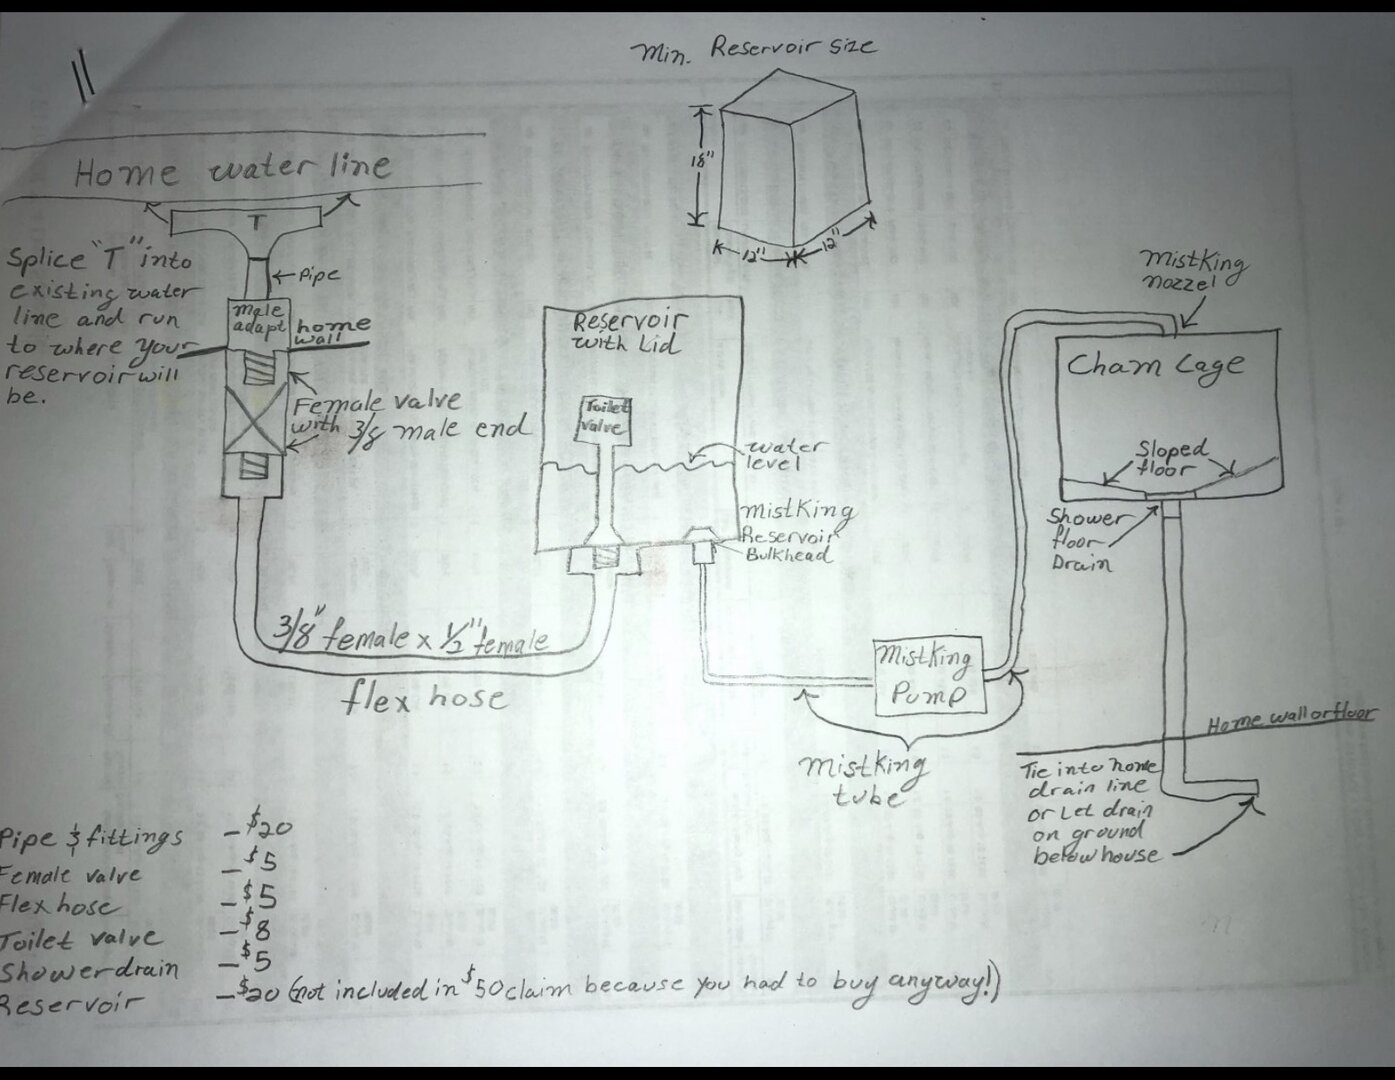 Min. Reservoir size
18"
12"
12"
Home water line
T
Splice "T" into
existing water
line and run
to where your
reservoir will
be.
Pipe
male
adapt
home
wall
Female valve
with 3/8 male end
Reservoir
with Lid
Toilet
valve
water
level
mistKing
Reservoir
Bulkhead
3/8" female x 1/2" female
flex hose
MistKing
Pump
mistKing
tube
mistKing
nozzel
Cham Cage
Sloped
floor
Shower
floor
Drain
Home wall or floor
Tie into home
drain line
or Let drain
on ground
below house
Pipe & fittings - $20
Female valve - $5
Flex hose - $5
Toilet valve - $8
Shower drain - $5
Reservoir - $20 (not included in $50 claim because you had to buy anyway!)